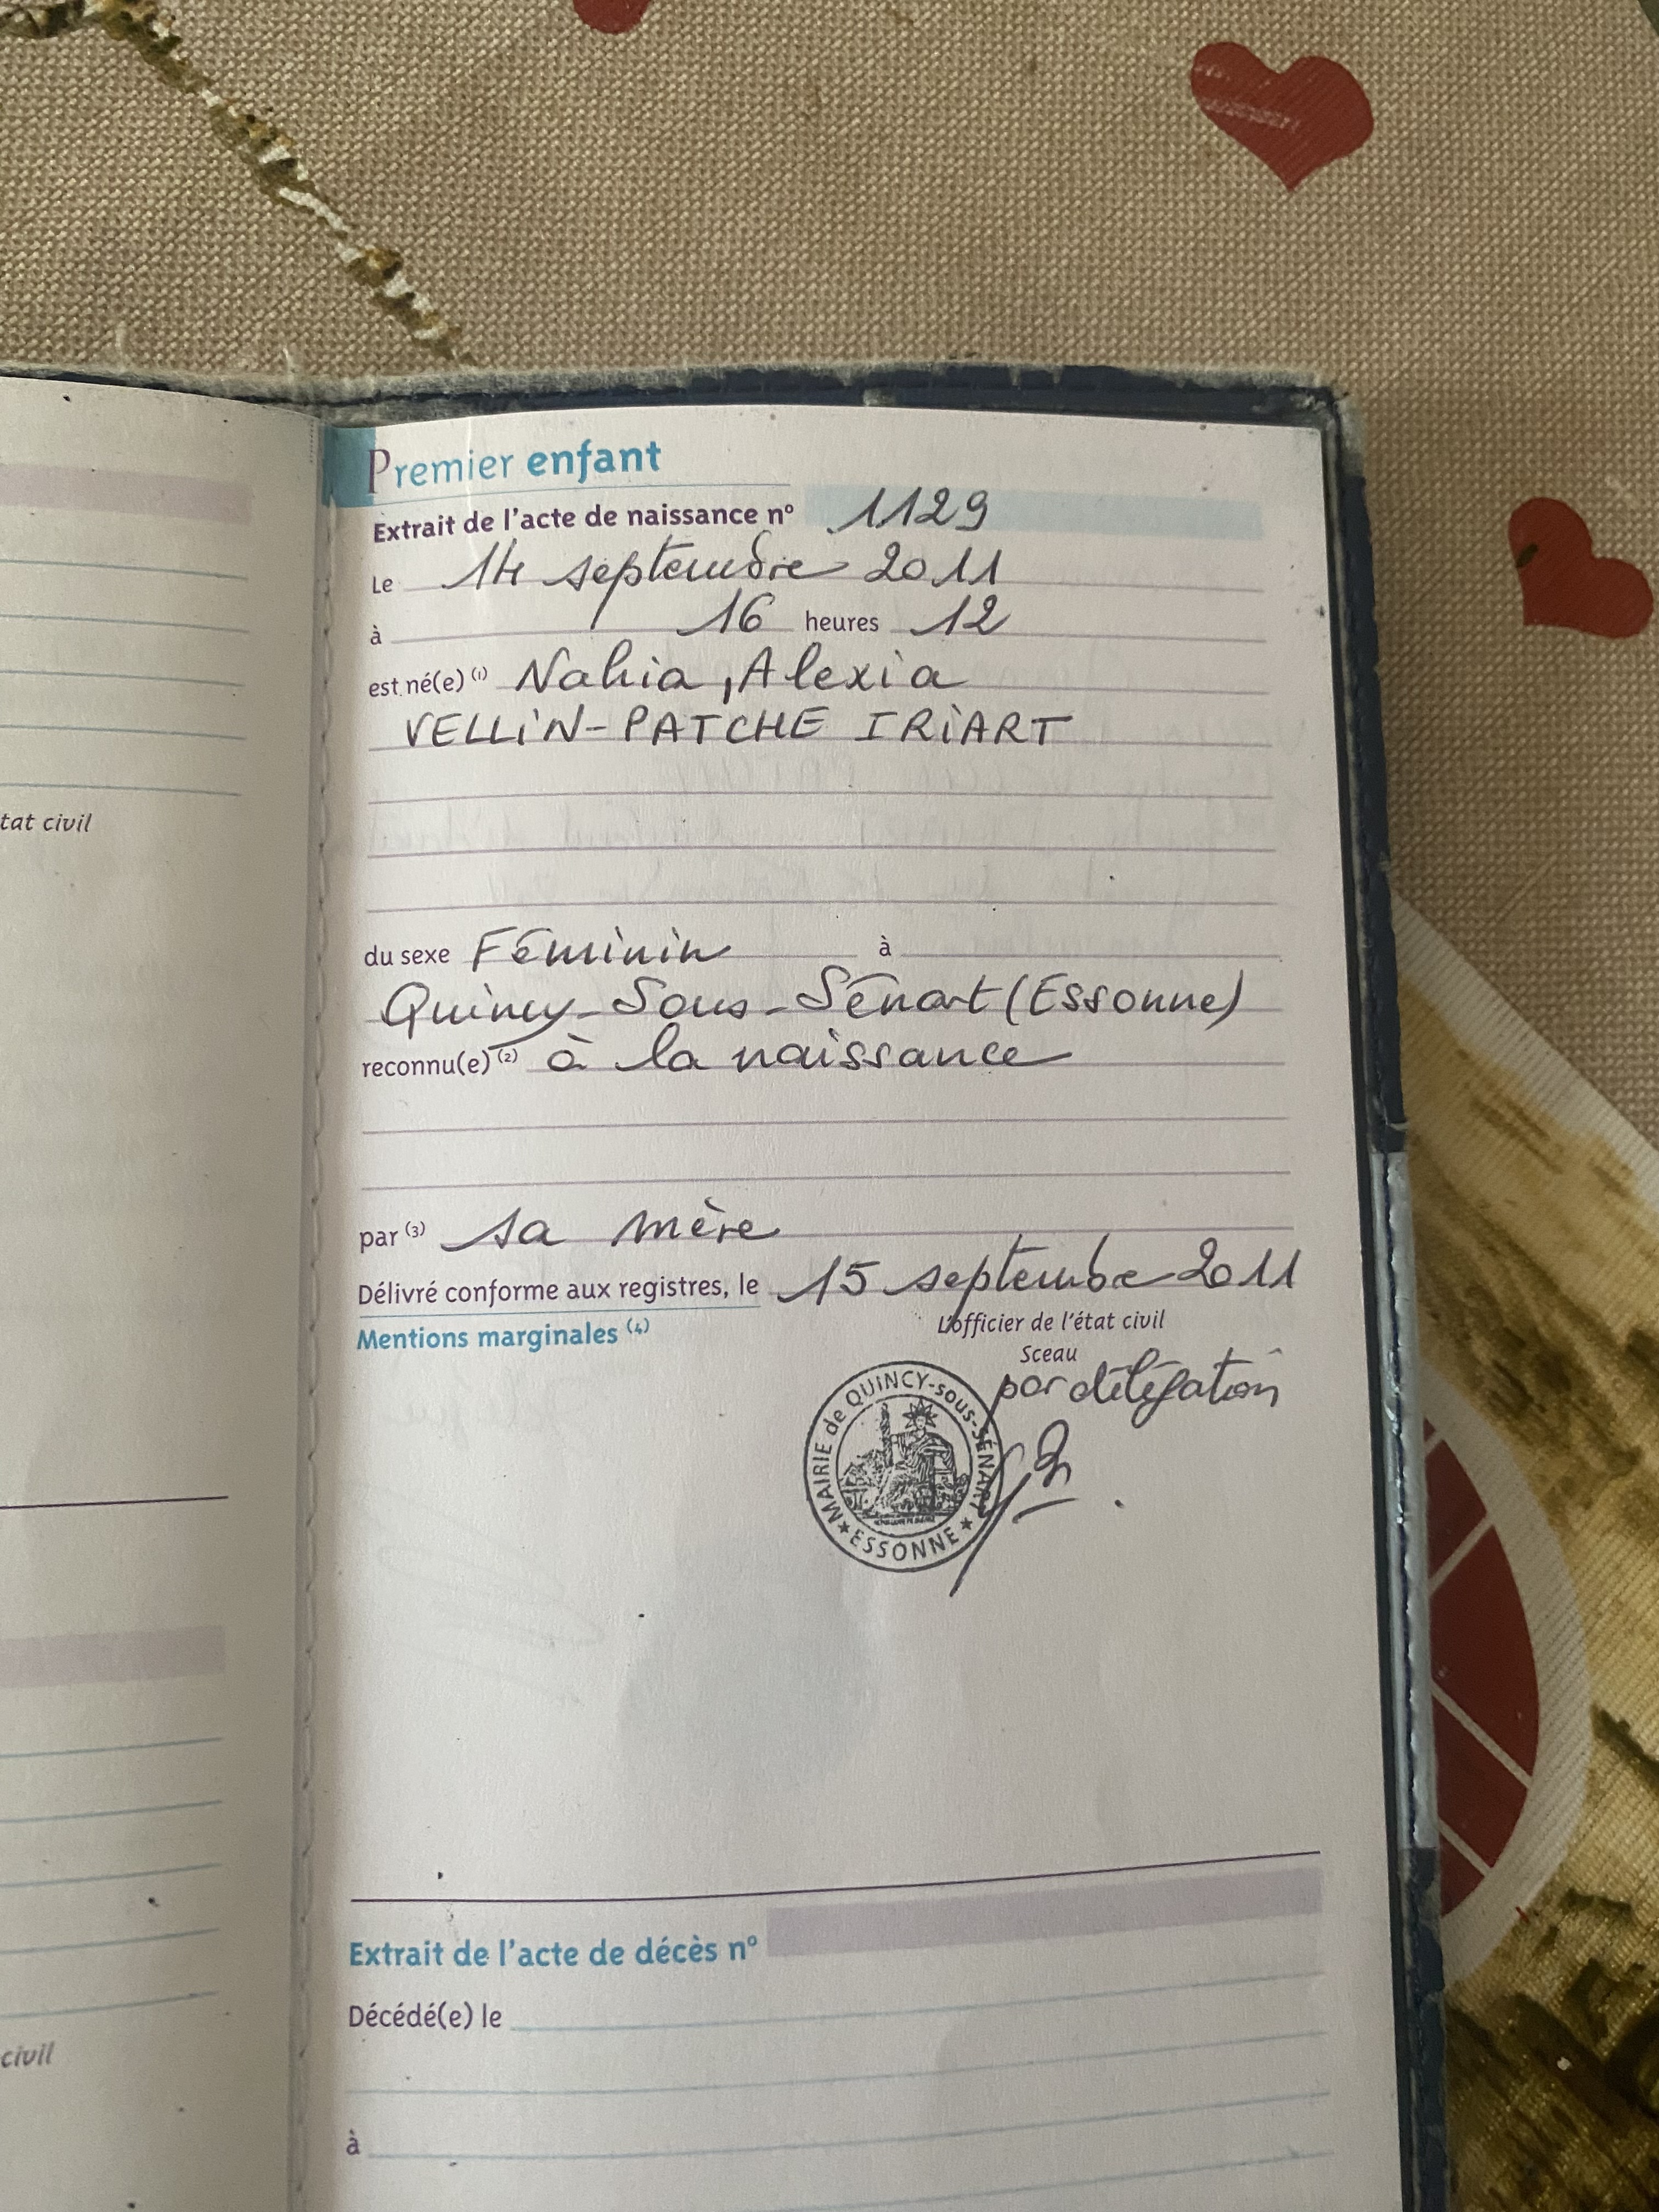 tat civil
civil
Premier enfant
Extrait de l'acte de naissance n° 1129
Le 14 septembre 2011
à 16 heures 12
est né(e) (1) Nahia, Alexia
VELLIN-PATCHE IRIART
du sexe Féminin à
Quincy-Sous-Sénart (Essonne)
reconnu(e) (2) à la naissance
par (3) sa mère
Délivré conforme aux registres, le 15 septembre 2011
Mentions marginales (4)
L'officier de l'état civil
Sceau
par délégation
MAIRIE de QUINCY-sous-SÉNART
★ ESSONNE ★
Extrait de l'acte de décès n°
Décédé(e) le
à